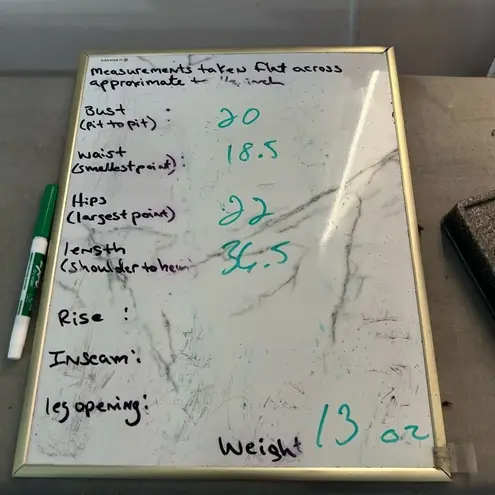 Measurements taken flat across
approximate + inch
Bust : 20
(pit to pit)
Waist 18.5
(smallest point):
Hips 22
(largest point)
length 36.5
(shoulder to hem)
Rise :
Inseam:
leg opening:
Weight 13 oz